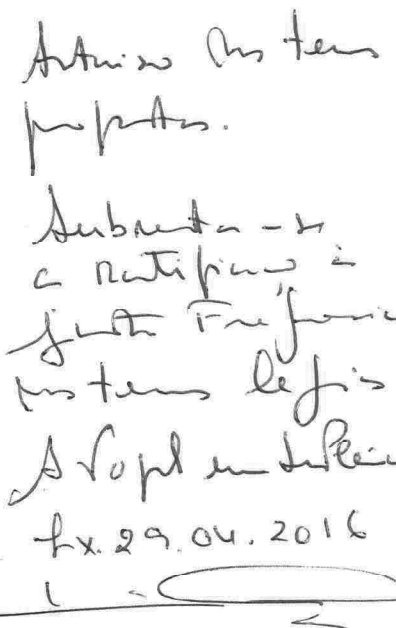 Autorizo nos termos
propostos.
Submeta-se
a ratificação à
Junta Freguesia
nos termos legais
A Vogal em
Lx. 29.04.2016